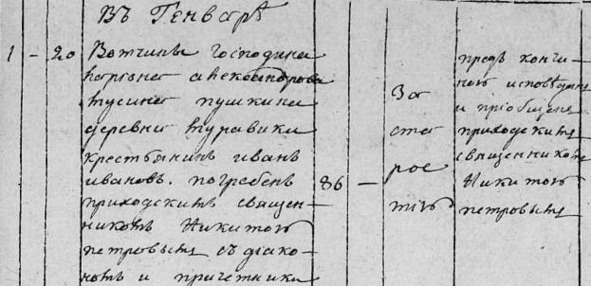 Въ Генварѣ
1 – 20 Вотчины господина
александрова
мусина пушкина
деревни муравики
крестьянинъ иванъ
ивановъ. погребенъ
приходскимъ священ-
никомъ Никитою
петровымъ съ діако-
номъ и причетники
86 –
За
ста
рос
тію
предъ кончи-
ною исповѣданъ
и пріобщенъ
приходскимъ
священникомъ
Никитою
петровымъ